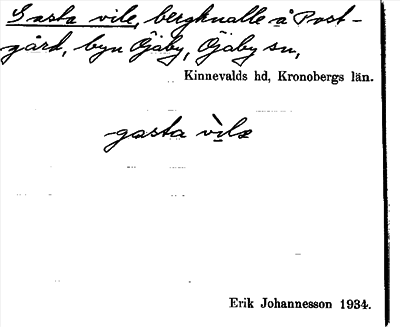 Gasta vile, bergknalle å Post-
gård, byn Öjaby, Öjaby sn,
Kinnevalds hd, Kronobergs län.
gasta vìlə
Erik Johannesson 1934.